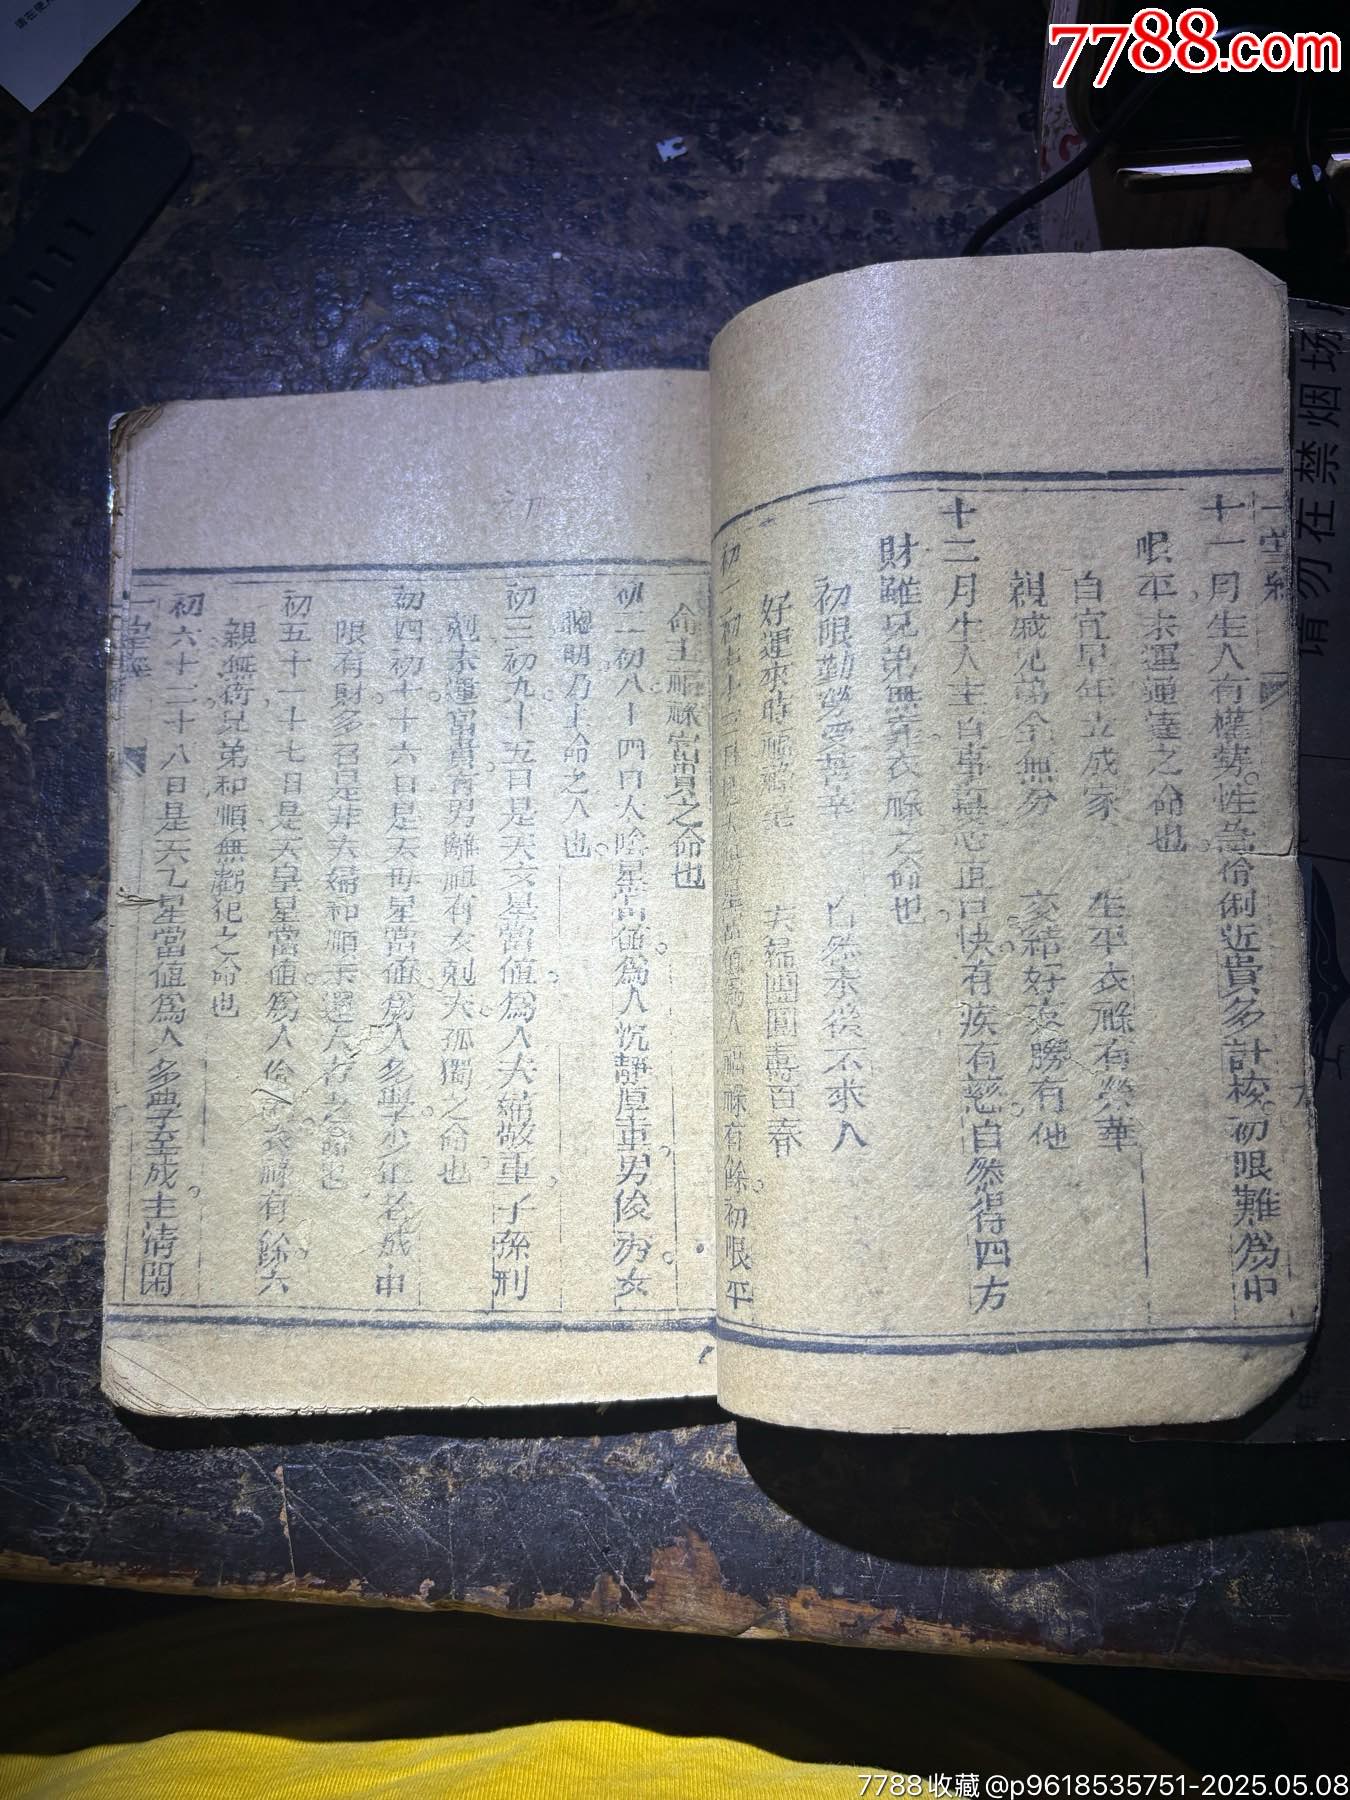 7788.com
十一月生人有權势。性急伶俐近貴多計校。初限難為中
限平末運運達之命也
自宜早年立成家 生平衣祿有榮華
親戚兄弟全無分 交結好友勝有他
十二月生人主百事無心直口快有疾有慈。自然得四方
財雖兄弟無靠衣祿之命也
初限勤勞受苦辛 自然末後不求人
好運來時 夫婦團圓壽百春
初一初七十三日是太陽星當值為人福祿有餘。初限平
命主福祿富貴之命也
初二初八十四日太陰星當值。為人沉靜厚重男俊秀女
聰明乃上命之人也。
初三初九十五日是天文星當值。為人夫婦敬重。子孫刑
剋末運富貴有男離祖有女剋夫。孤獨之命也
初四初十十六日是天每星當值。為人多學少年老成中
限有財多召是非夫婦和順末運大吉之命也
初五十一十七日是天皇星當值。為人衣祿有餘六
親無倚兄弟和順無虧犯之命也
初六十二十八日是天乙星當值為人多學至成。主清閑
请勿在禁烟场
7788收藏@p9618535751-2025.05.08